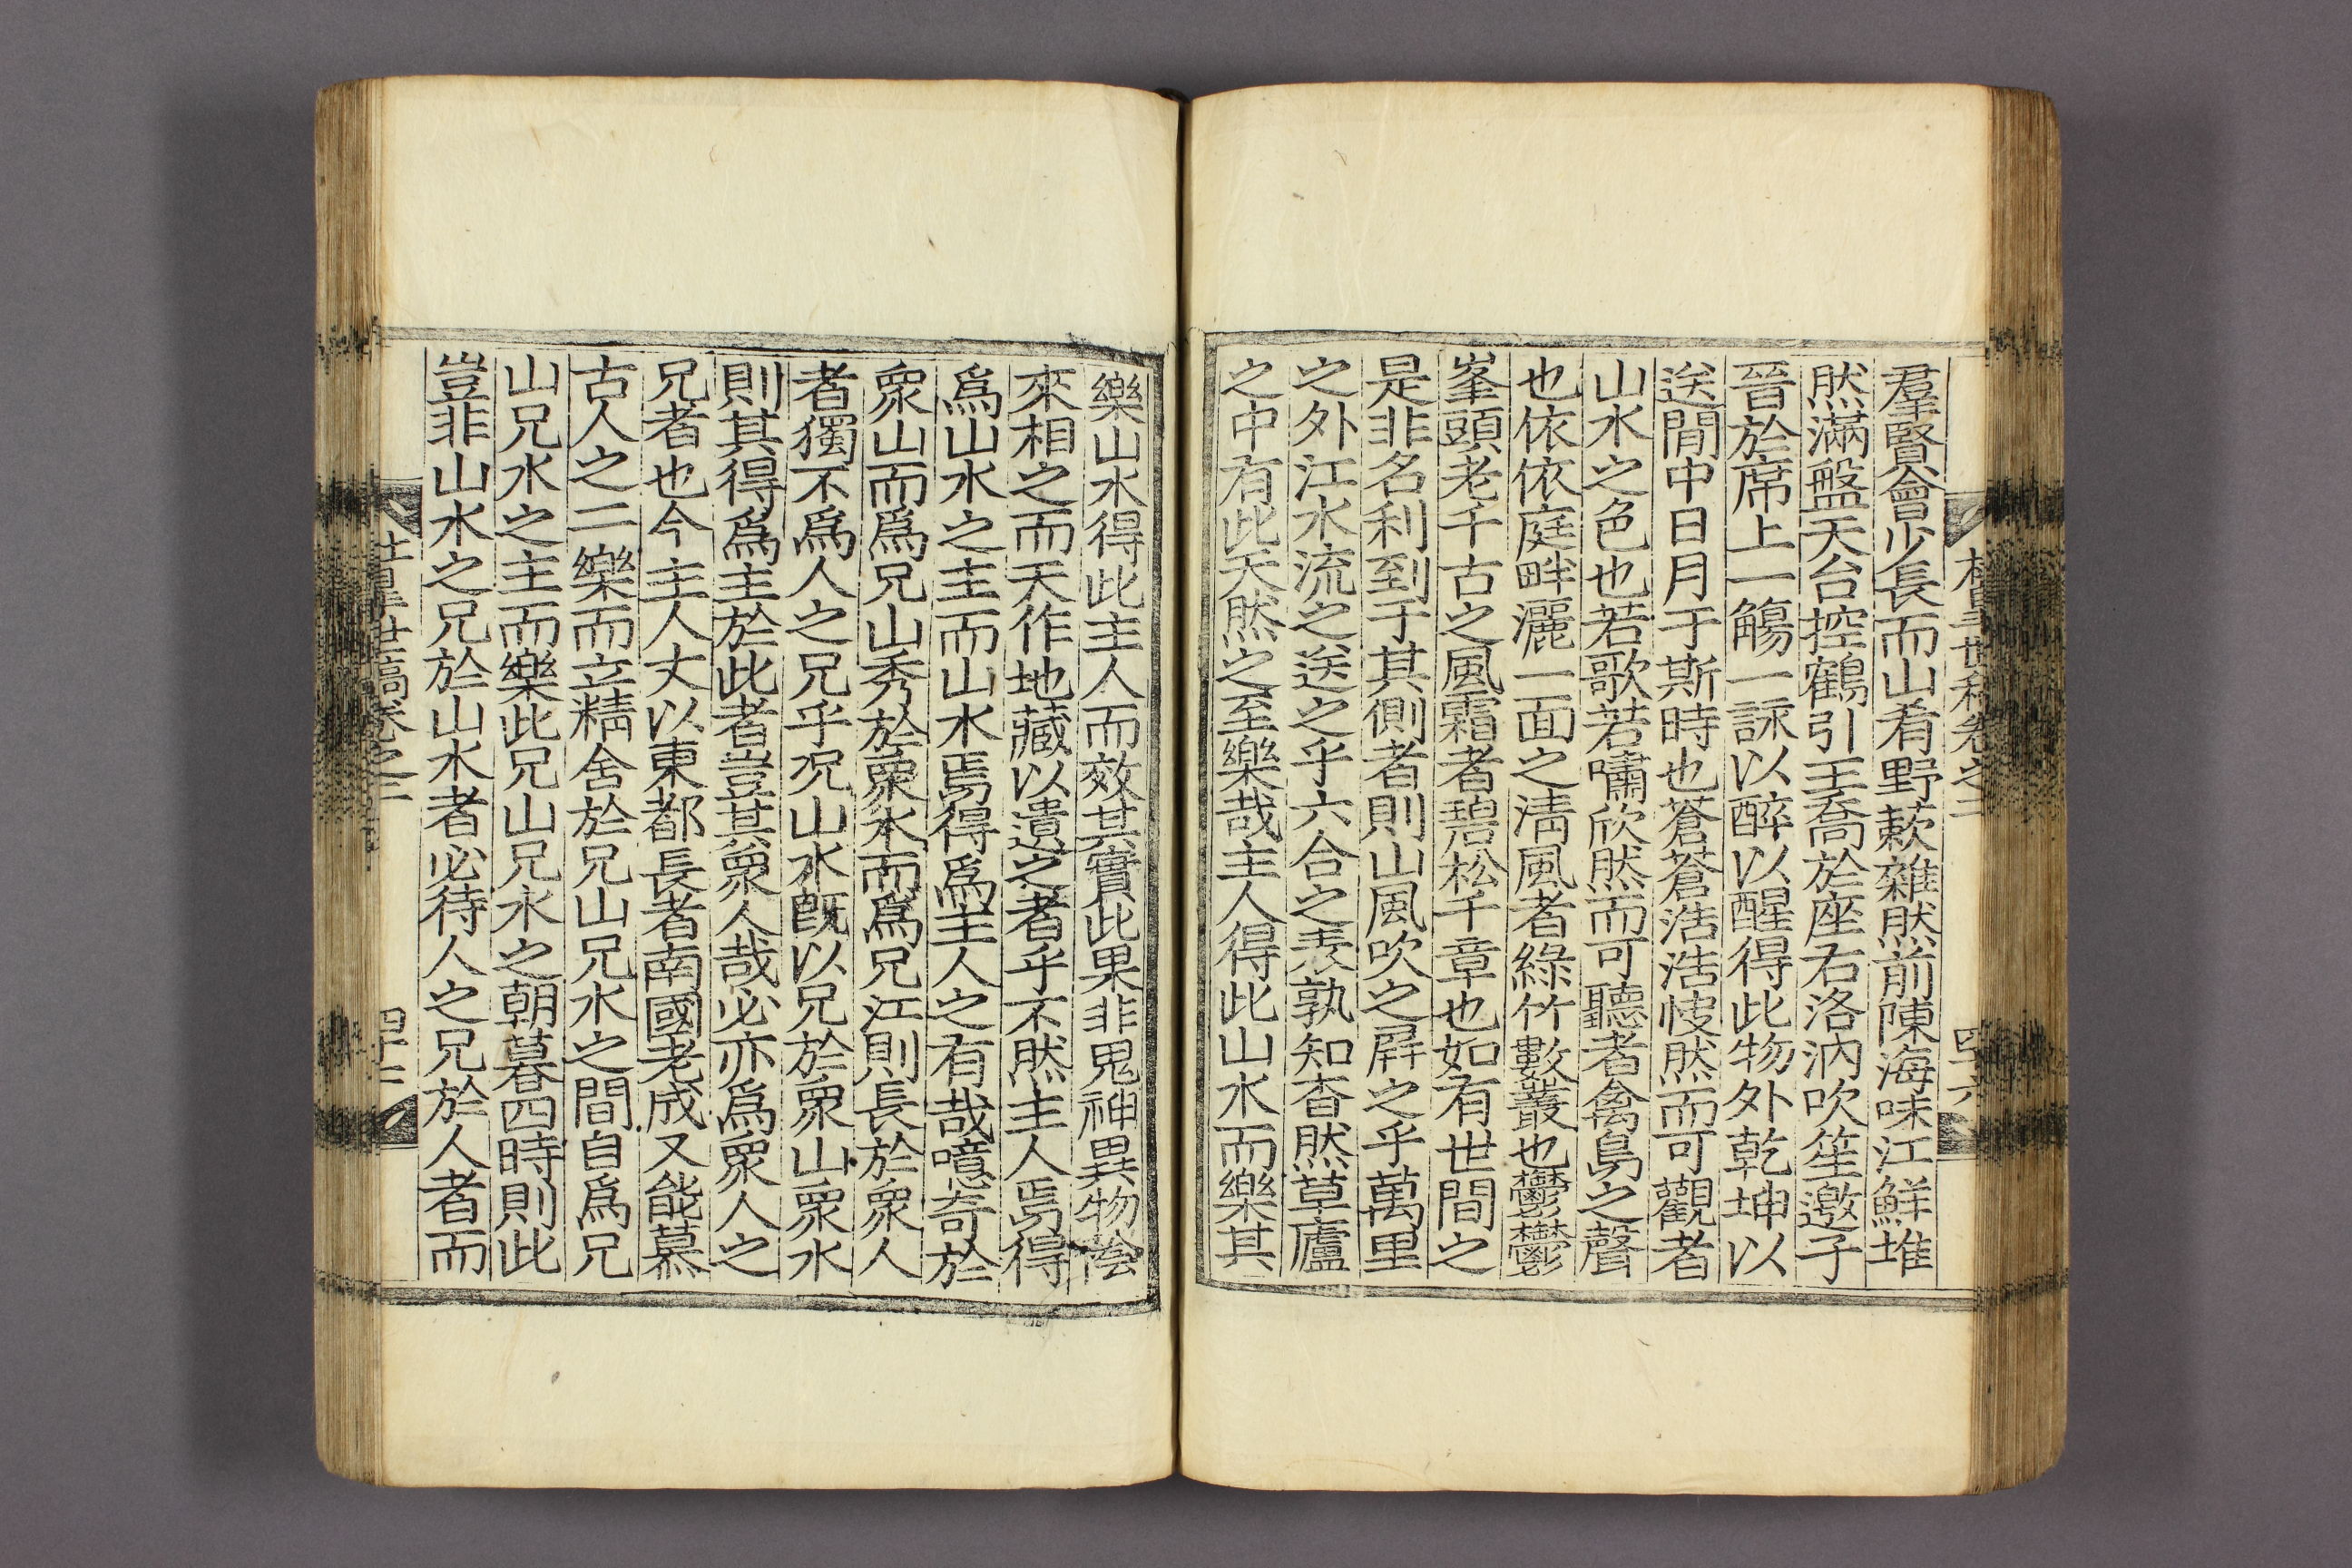 羣賢會少長而山肴野蔌雜然前陳海味江鮮堆
然滿盤天台控鶴引王喬於座右洛汭吹笙邀子
晉於席上一觴一詠以醉以醒得此物外乾坤以
送閒中日月于斯時也蒼蒼浩浩悛然而可觀者
山水之色也若歌若嘯欣然而可聽者禽鳥之聲
也依依庭畔灑一面之淸風者綠竹數叢也鬱鬱
峯頭老千古之風霜者碧松千章也如有世間之
是非名利到于其側者則山風吹之屛之乎萬里
之外江水流之送之乎六合之表孰知杳然草廬
之中有此天然之至樂哉主人得此山水而樂其
樂山水得此主人而效其實此果非鬼神異物陰
來相之而天作地藏以遺之者乎不然主人焉得
爲山水之主而山水焉得爲主人之有哉噫奇於
衆山而爲兄山秀於衆水而爲兄江則長於衆人
者獨不爲人之兄乎況山水旣以兄於衆山衆水
則其得爲主於此者豈其衆人哉必亦爲衆人之
兄者也今主人丈以東都長者南國老成又能慕
古人之二樂而立精舍於兄山兄水之間自爲兄
山兄水之主而樂此兄山兄水之朝暮四時則此
豈非山水之兄於山水者必待人之兄於人者而
世稿卷之二
四十二